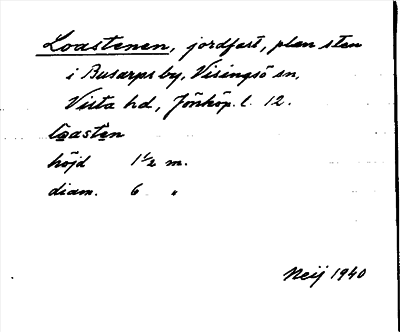 Loastenen, jordfast, plan sten
i Busarps by, Visingsö sn,
Vista hd, Jönköp. l. 12.
loasten
höjd 1 1/2 m.
diam. 6 "
Neij 1940